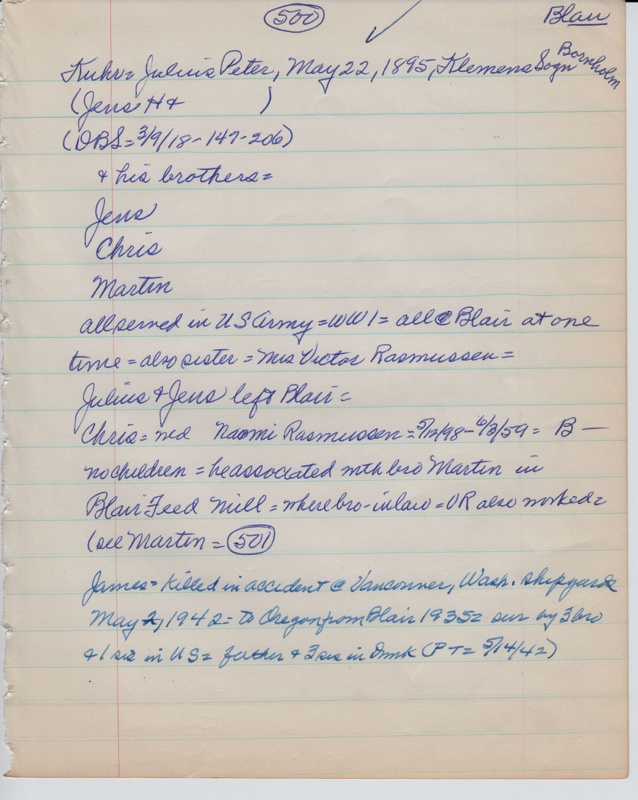 500
Blair
Kuhr = Julius Peter, May 22, 1895, Klemens Sogn Bornholm
(Jens H +                )
(DBS = 3/9/18 - 147 - 206)
+ his brothers =
Jens
Chris
Martin
all served in US Army = WW1 = all @ Blair at one
time = also sister = Mrs Victor Rasmussen =
Julius + Jens left Blair =
Chris = md Naomi Rasmussen = 5/12/98 - 6/3/59 = B —
no children = he associated with bro Martin in
Blair Feed Mill = where bro-in law = VR also worked =
(see Martin = 501
James = killed in accident @ Vancouver, Wash. shipyards
May 2, 1942 = to Oregon from Blair 1935 = sur by 3 bro
+ 1 sis in US = father + 3 sis in Dmk (PT = 5/14/42)